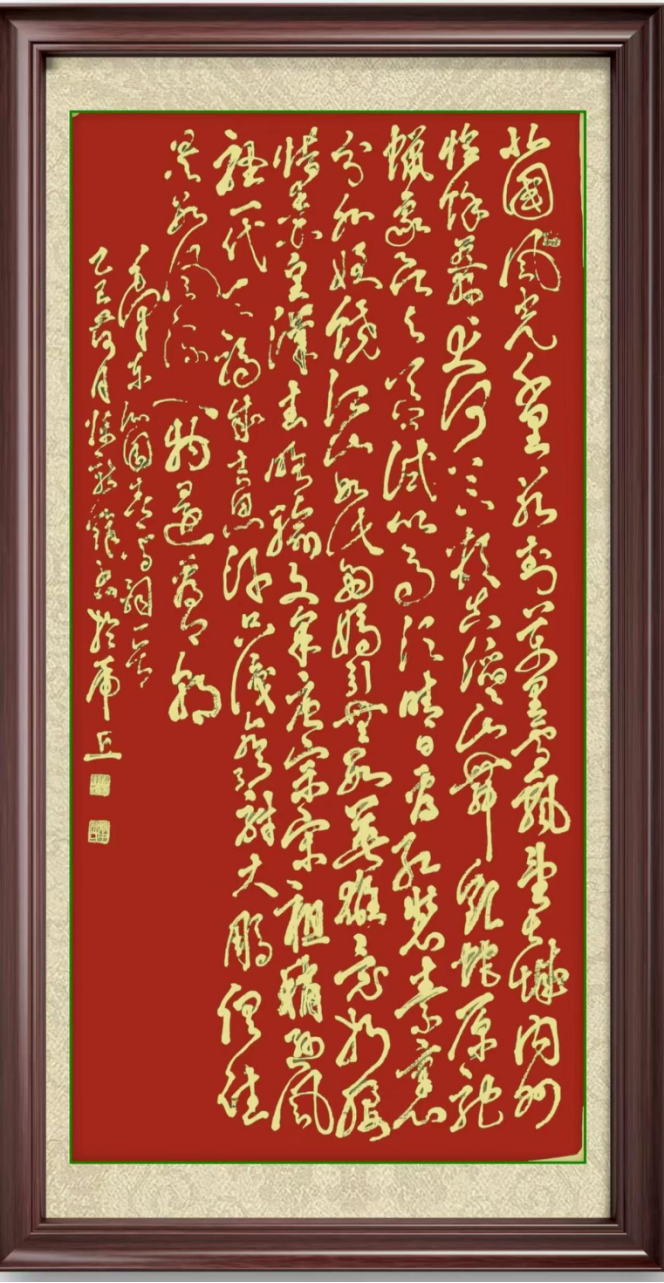 北國風光千里冰封萬里雪飄望長城内外
惟餘莽莽大河上下頓失滔滔山舞銀蛇原馳
蠟象欲與天公試比高須晴日看紅裝素裹
分外妖嬈江山如此多嬌引無數英雄競折腰
惜秦皇漢武略輸文采唐宗宋祖稍遜風
騷一代天驕成吉思汗只識彎弓射大雕俱往
矣數風流人物還看今朝
毛澤東沁園春雪詞一首
乙巳荷月書於虎丘